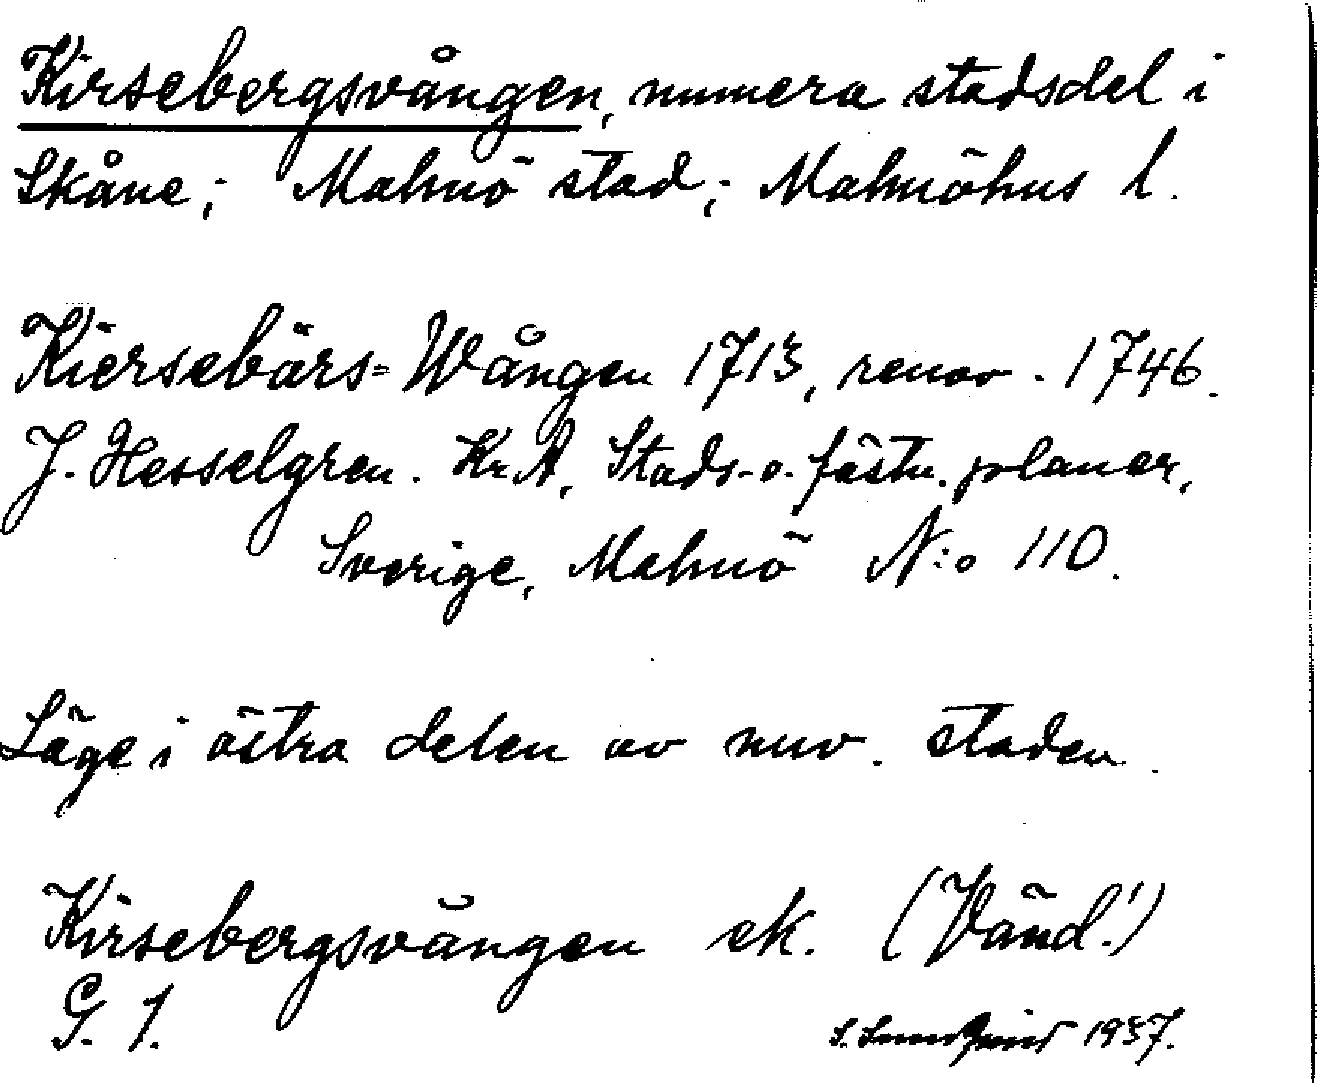 Kirsebergsvången, numera stadsdel i
Skåne; Malmö stad; Malmöhus l.
Kiersebärs=Wången 1713, renov. 1746.
J. Hesselgren. Kr.A, Stads- o. fästn. planer,
Sverige, Malmö N:o 110.
Läge i östra delen av nuv. staden.
Kirsebergsvången ek. (Vänd!)
G. 1.
S. 1937.